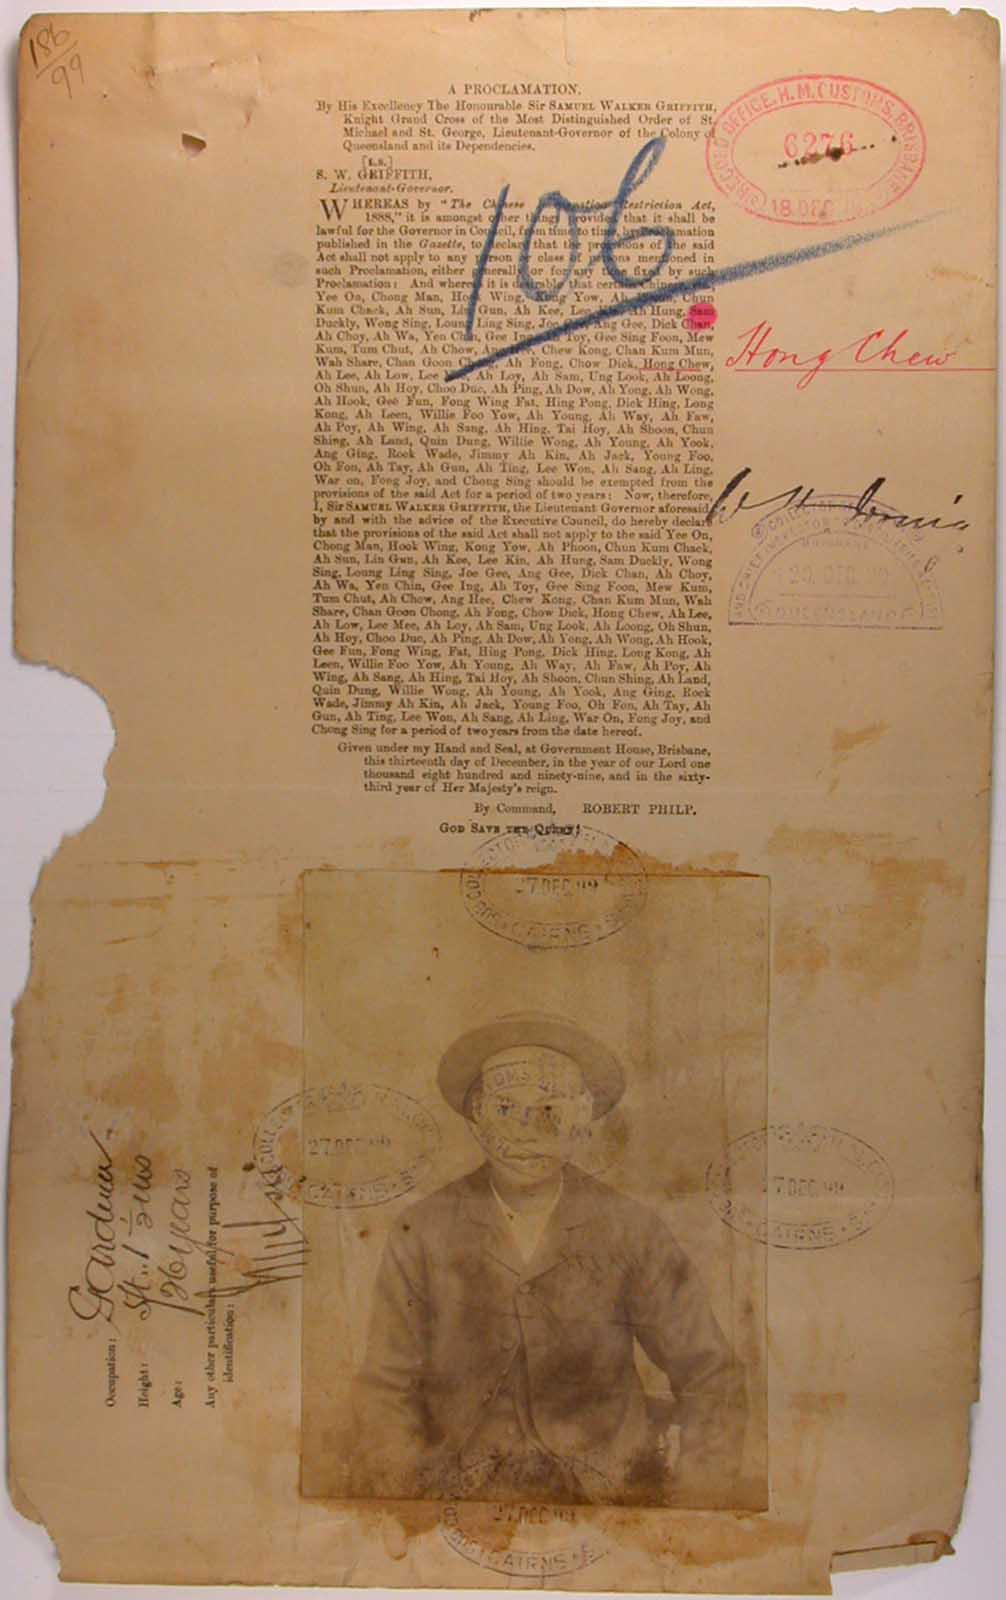 186
99
A PROCLAMATION.
By His Excellency The Honourable Sir SAMUEL WALKER GRIFFITH,
Knight Grand Cross of the Most Distinguished Order of St.
Michael and St. George, Lieutenant-Governor of the Colony of
Queensland and its Dependencies.
[L.S.]
S. W. GRIFFITH,
Lieutenant-Governor.
WHEREAS by "The Chinese Immigration Restriction Act,
1888," it is amongst other things provided that it shall be
lawful for the Governor in Council, from time to time, by Proclamation
published in the Gazette, to declare that the provisions of the said
Act shall not apply to any person or class of persons mentioned in
such Proclamation, either generally or for any time fixed by such
Proclamation: And whereas it is desirable that certain Chinese,
Yee On, Chong Man, Hook Wing, Kong Yow, Ah Phoon, Chun
Kum Chack, Ah Sun, Lin Gun, Ah Kee, Lee Kin, Ah Hung, Sam
Duckly, Wong Sing, Loung Ling Sing, Joe Gee, Ang Gee, Dick Chan,
Ah Choy, Ah Wa, Yen Chin, Gee Ing, Ah Toy, Gee Sing Foon, Mew
Kum, Tum Chut, Ah Chow, Ang Hee, Chew Kong, Chan Kum Mun,
Wah Share, Chan Goon Chong, Ah Fong, Chow Dick, Hong Chew,
Ah Lee, Ah Low, Lee Mee, Ah Loy, Ah Sam, Ung Look, Ah Loong,
Oh Shun, Ah Hoy, Choo Duc, Ah Ping, Ah Dow, Ah Yong, Ah Wong,
Ah Hook, Gee Fun, Fong Wing Fat, Hing Pong, Dick Hing, Long
Kong, Ah Leen, Willie Foo Yow, Ah Young, Ah Way, Ah Faw,
Ah Poy, Ah Wing, Ah Sang, Ah Hing, Tai Hoy, Ah Shoon, Chun
Shing, Ah Land, Quin Dung, Willie Wong, Ah Young, Ah Yook,
Ang Ging, Rock Wade, Jimmy Ah Kin, Ah Jack, Young Foo,
Oh Fon, Ah Tay, Ah Gun, Ah Ting, Lee Won, Ah Sang, Ah Ling,
War on, Fong Joy, and Chong Sing should be exempted from the
provisions of the said Act for a period of two years: Now, therefore,
I, Sir SAMUEL WALKER GRIFFITH, the Lieutenant Governor aforesaid,
by and with the advice of the Executive Council, do hereby declare
that the provisions of the said Act shall not apply to the said Yee On,
Chong Man, Hook Wing, Kong Yow, Ah Phoon, Chun Kum Chack,
Ah Sun, Lin Gun, Ah Kee, Lee Kin, Ah Hung, Sam Duckly, Wong
Sing, Loung Ling Sing, Joe Gee, Ang Gee, Dick Chan, Ah Choy,
Ah Wa, Yen Chin, Gee Ing, Ah Toy, Gee Sing Foon, Mew Kum,
Tum Chut, Ah Chow, Ang Hee, Chew Kong, Chan Kum Mun, Wah
Share, Chan Goon Chong, Ah Fong, Chow Dick, Hong Chew, Ah Lee,
Ah Low, Lee Mee, Ah Loy, Ah Sam, Ung Look, Ah Loong, Oh Shun,
Ah Hoy, Choo Duc, Ah Ping, Ah Dow, Ah Yong, Ah Wong, Ah Hook,
Gee Fun, Fong Wing, Fat, Hing Pong, Dick Hing, Long Kong, Ah
Leen, Willie Foo Yow, Ah Young, Ah Way, Ah Faw, Ah Poy, Ah
Wing, Ah Sang, Ah Hing, Tai Hoy, Ah Shoon, Chun Shing, Ah Land,
Quin Dung, Willie Wong, Ah Young, Ah Yook, Ang Ging, Rock
Wade, Jimmy Ah Kin, Ah Jack, Young Foo, Oh Fon, Ah Tay, Ah
Gun, Ah Ting, Lee Won, Ah Sang, Ah Ling, War On, Fong Joy, and
Chong Sing for a period of two years from the date hereof.
Given under my Hand and Seal, at Government House, Brisbane,
this thirteenth day of December, in the year of our Lord one
thousand eight hundred and ninety-nine, and in the sixty-
third year of Her Majesty's reign.
By Command, ROBERT PHILP.
GOD SAVE THE QUEEN!
106
RECORD OFFICE, H.M. CUSTOMS, BRISBANE
6276
18 DEC
Hong Chew
BRISBANE
20 DEC 99
QUEENSLAND
27 DEC 99
CAIRNS
27 DEC 99
CAIRNS
27 DEC 99
CAIRNS
27 DEC 99
CAIRNS
Occupation: Gardener
Height: 5ft. 1½ins
Age: 26 years
Any other particulars useful for purpose of
identification: